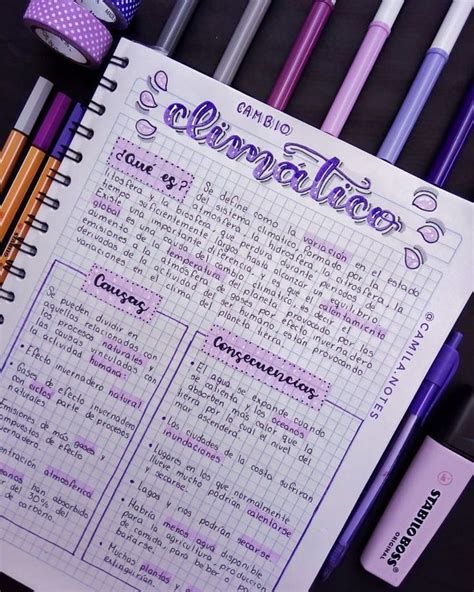 CAMBIO
climático
¿Qué es?
Se define como la variación en el estado
del sistema climático formado por la atmósfera, la
litosfera y la biosfera que perdura durante periodos de
tiempo suficientemente largos un equilibrio
Existe una importante diferencia, y es que el calentamiento
global es una causa del cambio climático, es decir, el
aumento de la temperatura del planeta provocado por las
emisiones a la atmósfera de gases por efecto invernadero
derivadas de la actividad del ser humano, están provocando
variaciones en el clima del planeta tierra
Causas
Se pueden dividir en
aquellas relacionadas con
los procesos naturales y
las causas vinculadas con
la actividad humana
• Efecto invernadero natural
Gases de efecto invernadero
con ciclos parte de procesos
naturales
Emisiones de más gases y
compuestos de efecto
invernadero
atmosférica
han absorbido
del 30% del
de carbono.
Consecuencias
• El agua se expande cuando
se calienta y los océanos
absorben más calor que la
tierra por lo cual el nivel del
mar ascenderá.
• Las ciudades de la costa sufrirán
inundaciones
• Lugares en los que normalmente
llueve mucho podrían calentarse
y secarse.
• Lagos y ríos podrían secarse
• Habría menos agua disponible
para la agricultura, para producir
comida, para beber o para
bañarse.
• Muchas plantas y
extinguirían.
@CAMILA.NOTES
STABILO BOSS
ORIGINAL